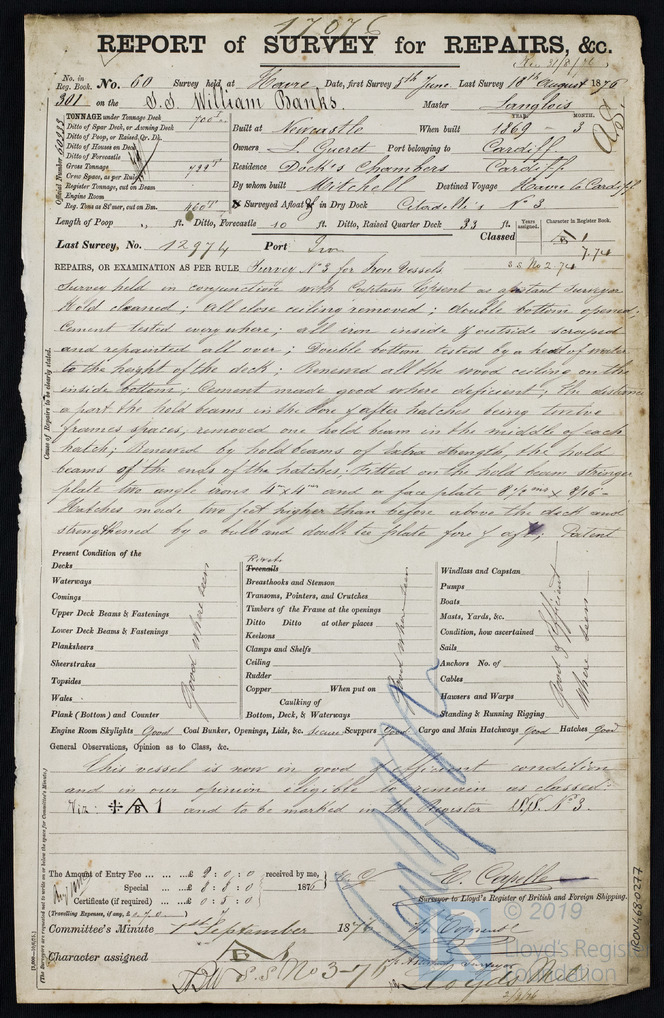 17076
REPORT of SURVEY for REPAIRS, &c.
Rec 31/8/76
No. in Reg. Book. No. 60 Survey held at Havre Date, first Survey 5th June Last Survey 18th August 1876
301 on the S.S. William Banks. Master Langlois
TONNAGE under Tonnage Deck 700
Ditto of Spar Deck, or Awning Deck
Ditto of Poop, or Raised Qr. Dk.
Ditto of Houses on Deck
Ditto of Forecastle
Gross Tonnage
Crew Space, as per Rule
Register Tonnage, cut on Beam
Engine Room
Reg. Tons as St'mer, cut on Bm. 460
Official Number
YEAR. MONTH.
Built at Newcastle When built 1869 - 3
Owners L. Gueret Port belonging to Cardiff
Residence Dock's Chambers Cardiff
By whom built Mitchell Destined Voyage Havre to Cardiff
Surveyed Afloat or in Dry Dock Citadelle's No 3
Length of Poop " ft. Ditto, Forecastle 10 ft. Ditto, Raised Quarter Deck 33 ft.
Years assigned. Character in Register Book.
Last Survey, No. 12974 Port Classed
7.74
S.S. No 2.74
REPAIRS, OR EXAMINATION AS PER RULE Survey No 3 for Iron Vessels
Survey held in conjunction with Captain Topsent as assistant surveyor
Hold cleaned; all close ceiling removed; double bottom opened;
Cement tested everywhere; all iron inside & outside scraped
and repainted all over; Double bottom tested by a head of water
to the height of the deck; Renewed all the wood ceiling on the
inside bottom; Cement made good where deficient; the distance
a part the hold beams in the fore & after hatches being twelve
frames spaces, removed one hold beam in the middle of each
hatch; Renewed by hold beams of Extra strength, the hold
beams of the ends of the hatches. Fitted on the hold beam stringer
plate two angle irons 4" x 4" and a face plate
Hatches made two feet higher than before above the deck and
strengthened by a bulb and double tee plate fore & aft; Patent
Cause of Repairs to be clearly stated.
Present Condition of the
Decks
Waterways
Comings
Upper Deck Beams & Fastenings
Lower Deck Beams & Fastenings
Planksheers
Sheerstrakes
Topsides
Wales
Plank (Bottom) and Counter
Good where seen
Rivets
Treenails
Breasthooks and Stemson
Transoms, Pointers, and Crutches
Timbers of the Frame at the openings
Ditto Ditto at other places
Keelsons
Clamps and Shelfs
Ceiling
Rudder
Copper When put on
Caulking of
Bottom, Deck, & Waterways
Good where seen
Windlass and Capstan
Pumps
Boats
Masts, Yards, &c.
Condition, how ascertained
Sails
Anchors No. of
Cables
Hawsers and Warps
Standing & Running Rigging
Good & Efficient
Where seen
Engine Room Skylights Good Coal Bunker, Openings, Lids, &c. secure Scuppers Good Cargo and Main Hatchways Good Hatches Good
General Observations, Opinion as to Class, &c.
This vessel is now in good & efficient condition
and in our opinion eligible to remain as classed.
Viz: B 1 and to be marked in the Register S.S. No 3.
The Amount of Entry Fee £ 2 : 0 : 0 received by me,
Special £ 8 : 8 : 0 1876
Certificate (if required) £ 0 : 5 : 0
(Travelling Expenses, if any, £ 1.7.0 )
E. Capelle
Surveyor to Lloyd's Register of British and Foreign Shipping.
Committee's Minute 1st September 1876
Character assigned B 1
S.S. No 3-76
© 2019
Lloyd's Register
Foundation
IRON468.0277